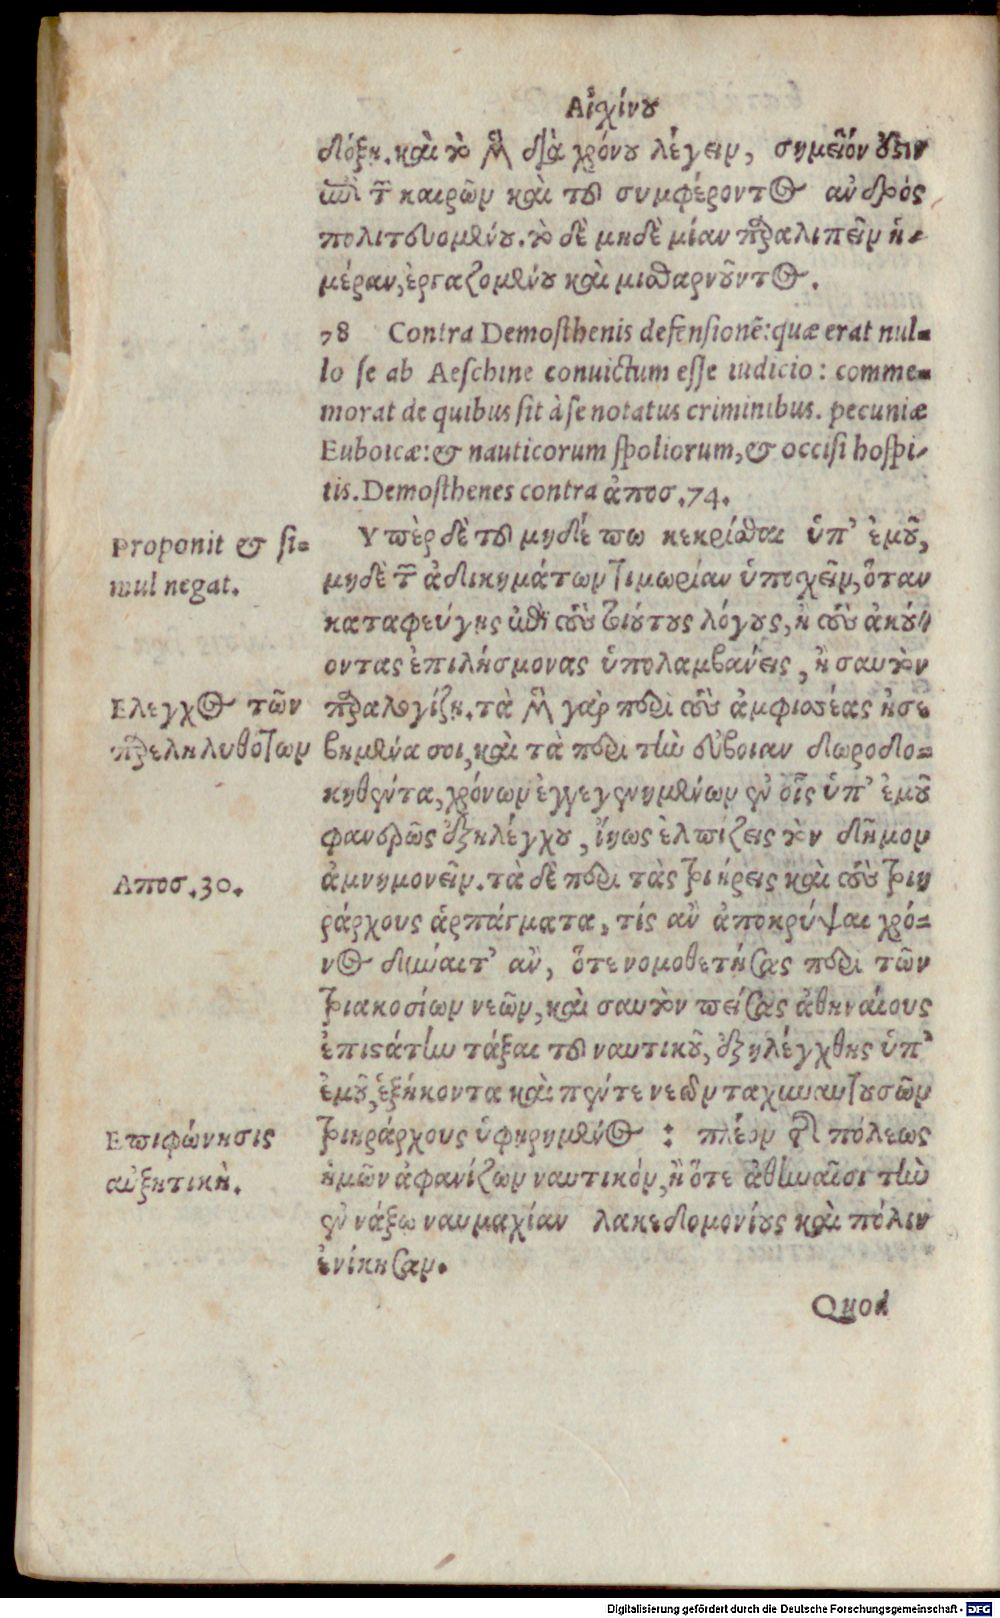 Αἰχίνου
δόξῃ. καὶ τὸ μὲν διὰ χρόνου λέγειν, σημεῖόν ὅξιν
ἐπὶ τῶν καιρῶν καὶ τοῦ συμφέροντος ἀνδρὸς
πολιτευομένου. τὸ δὲ μηδὲ μίαν παραλιπεῖν ἡ-
μέραν, ἐργαζομένου καὶ μισθαρνοῦντος.
78 Contra Demosthenis defensionẽ: quæ erat nul-
lo se ab Aeschine conuictum esse iudicio: comme-
morat de quibus sit à se notatus criminibus. pecuniæ
Euboicæ: & nauticorum spoliorum, & occisi hospi-
tis. Demosthenes contra ἀποσ. 74.
Proponit & si-
mul negat.
Υπὲρ δὲ τοῦ μηδέπω κεκρίσθαι ὑπ' ἐμοῦ,
μηδὲ τῶν ἀδικημάτων τιμωρίαν ὑποχεῖν, ὅταν
καταφεύγῃς ἐπὶ τοὺς τοιούτους λόγους, ἢ τοὺς ἀκού-
οντας ἐπιλήσμονας ὑπολαμβάνεις, ἢ σαυτὸν
Ελεγχος τῶν
παρεληλυθότων
παραλογίζῃ. τὰ μὲν γὰρ περὶ τοὺς ἀμφισσέας ἠσε
βημένα σοι, καὶ τὰ περὶ τὴν εὔβοιαν δωροδο-
κηθέντα, χρόνων ἐγγεγενημένων ἐν οἷς ὑπ' ἐμοῦ
φανερῶς ἐξηλέγχου, ἴσως ἐλπίζεις τὸν δῆμον
Αποσ. 30.
ἀμνημονεῖν. τὰ δὲ περὶ τὰς τριήρεις καὶ τοὺς τριη
ράρχους ἁρπάγματα, τίς ἂν ἀποκρύψαι χρό-
νος δύναιτ' ἂν, ὅτε νομοθετήσας περὶ τῶν
τριακοσίων νεῶν, καὶ σαυτὸν πείσας ἀθηναίους
ἐπιστάτην τάξαι τοῦ ναυτικοῦ, ἐξηλέγχθης ὑπ'
ἐμοῦ, ἑξήκοντα καὶ πέντε νεῶν ταχυναυτουσῶν
Επιφώνησις
αὐξητική.
τριηράρχους ὑφῃρημένος: πλέον τῆς πόλεως
ἡμῶν ἀφανίζων ναυτικόν, ἢ ὅτε ἀθηναῖοι τὴν
ἐν νάξῳ ναυμαχίαν λακεδομονίους καὶ πόλιν
ἐνίκησαν.
Quod
Digitalisierung gefördert durch die Deutsche Forschungsgemeinschaft - DFG